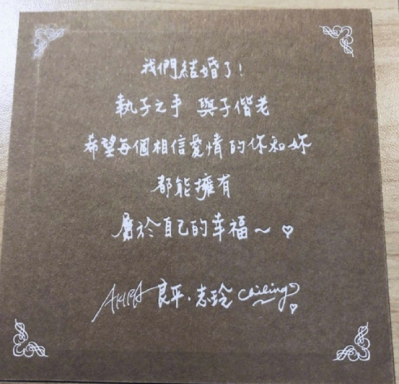 我們結婚了!
執子之手 與子偕老
希望每個相信愛情的你和妳
都能擁有
屬於自己的幸福~♡
AKIRA 良平·志玲 chiling♡